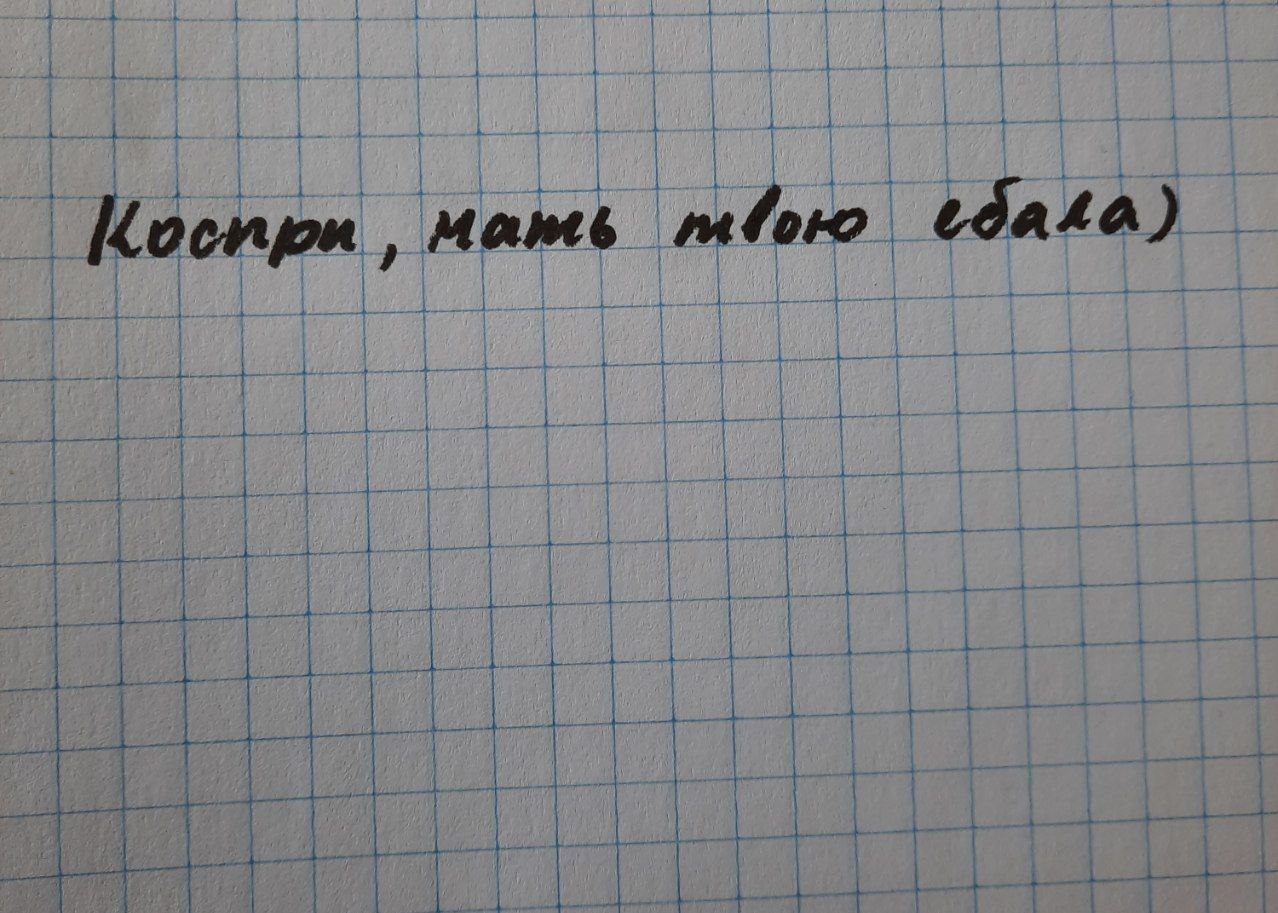 Коспри, мать твою ебала)